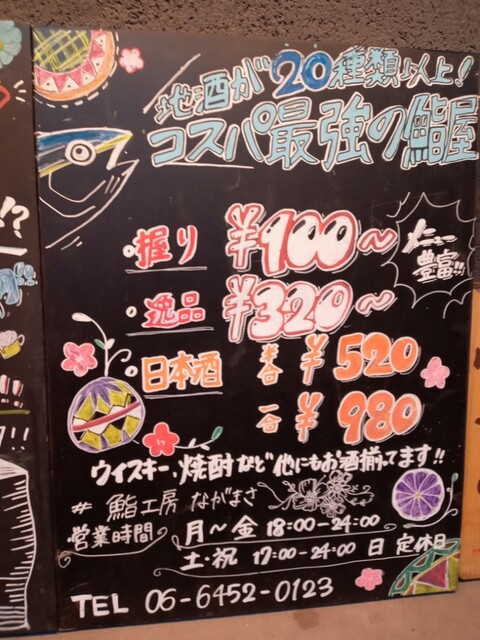 地酒が20種類以上!
コスパ最強の鮨屋
握り ¥100〜
メニュー
豊富!!
逸品 ¥320〜
日本酒 半合 ¥520
一合 ¥980
ウィスキー、焼酎など他にもお酒揃ってます!!
# 鮨工房 ながまさ
営業時間 月〜金 18:00-24:00
土・祝 17:00-24:00 日 定休日
TEL 06-6452-0123
!?
!!